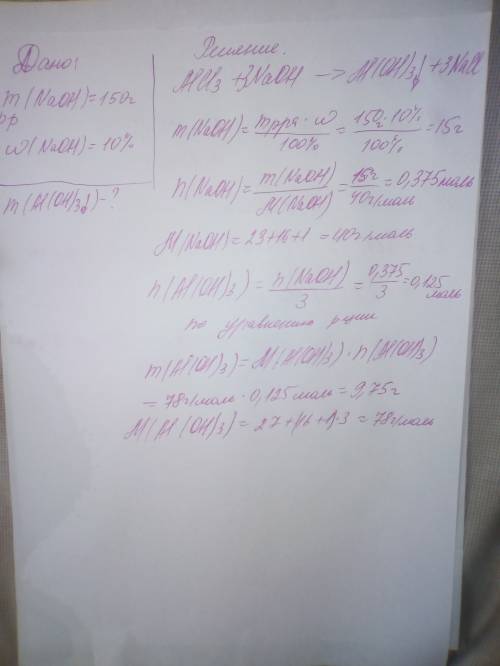 Дано:
m (NaOH) = 150г
рр
w (NaOH) = 10%
m (Al(OH)3↓) - ?
Решение.
AlCl3 + 3NaOH → Al(OH)3↓ + 3NaCl
m(NaOH) = mрра · w / 100% = 150г · 10% / 100% = 15г
n(NaOH) = m(NaOH) / M(NaOH) = 15г / 40г/моль = 0,375моль
M(NaOH) = 23+16+1 = 40г/моль
n(Al(OH)3) = n(NaOH) / 3 = 0,375 / 3 = 0,125 моль
по уравнению рции
m(Al(OH)3) = M(Al(OH)3) · n(Al(OH)3)
= 78г/моль · 0,125моль = 9,75г
M(Al(OH)3) = 27+(16+1)·3 = 78г/моль